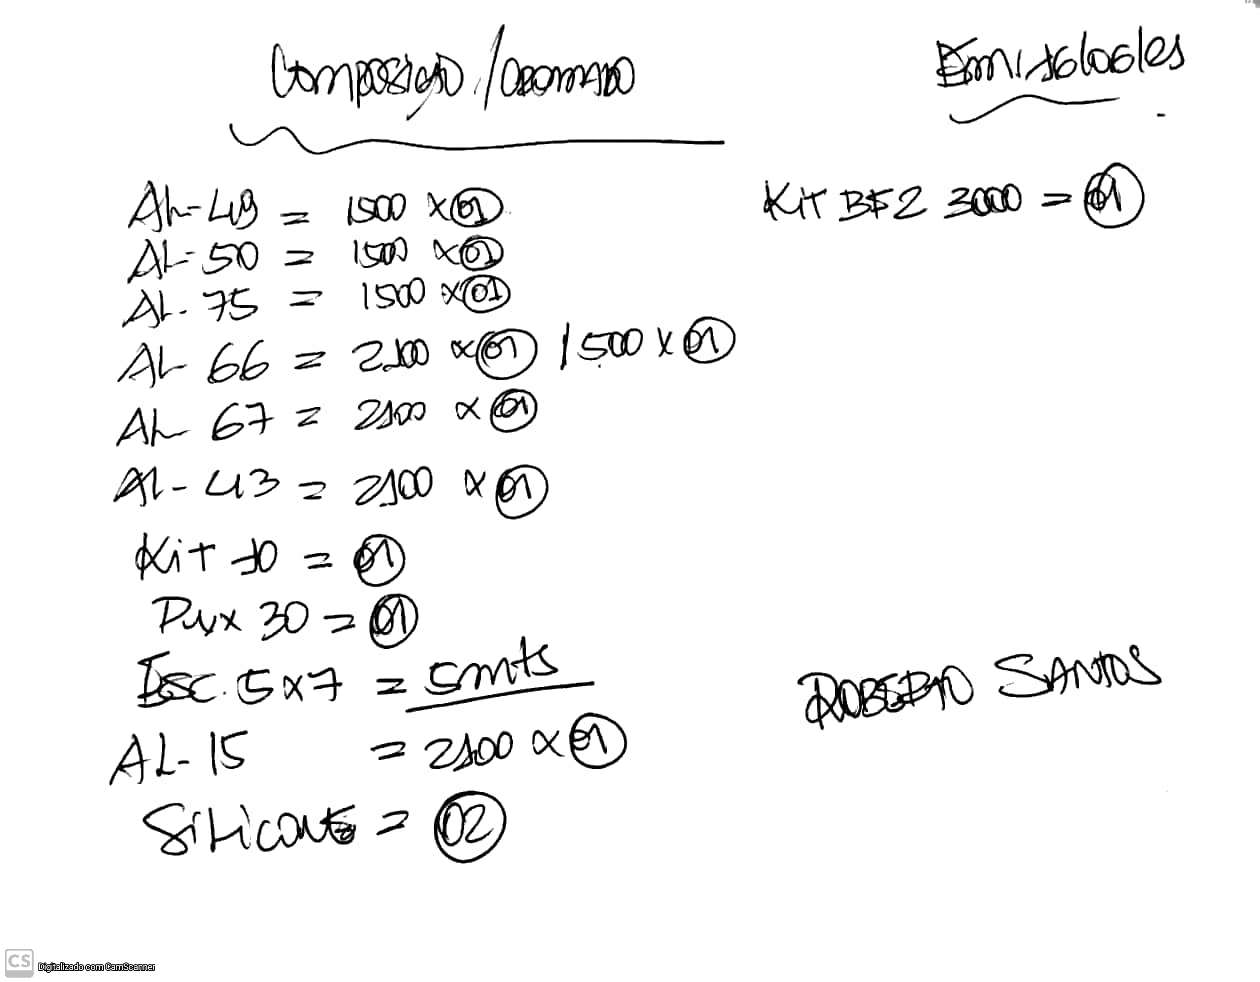 Composição / Cromado
AL-49 = 1500 x 01
AL-50 = 1500 x 01
AL-75 = 1500 x 01
AL 66 = 2100 x 01 1500 x 01
AL 67 = 2100 x 01
AL-43 = 2100 x 01
Kit 10 = 01
Pux 30 = 01
Esc. 5x7 = 5mts
AL-15 = 2100 x 01
Silicone = 02
Kit BF2 3000 = 01
ROBERTO SANTOS
CS Digitalizado com CamScanner